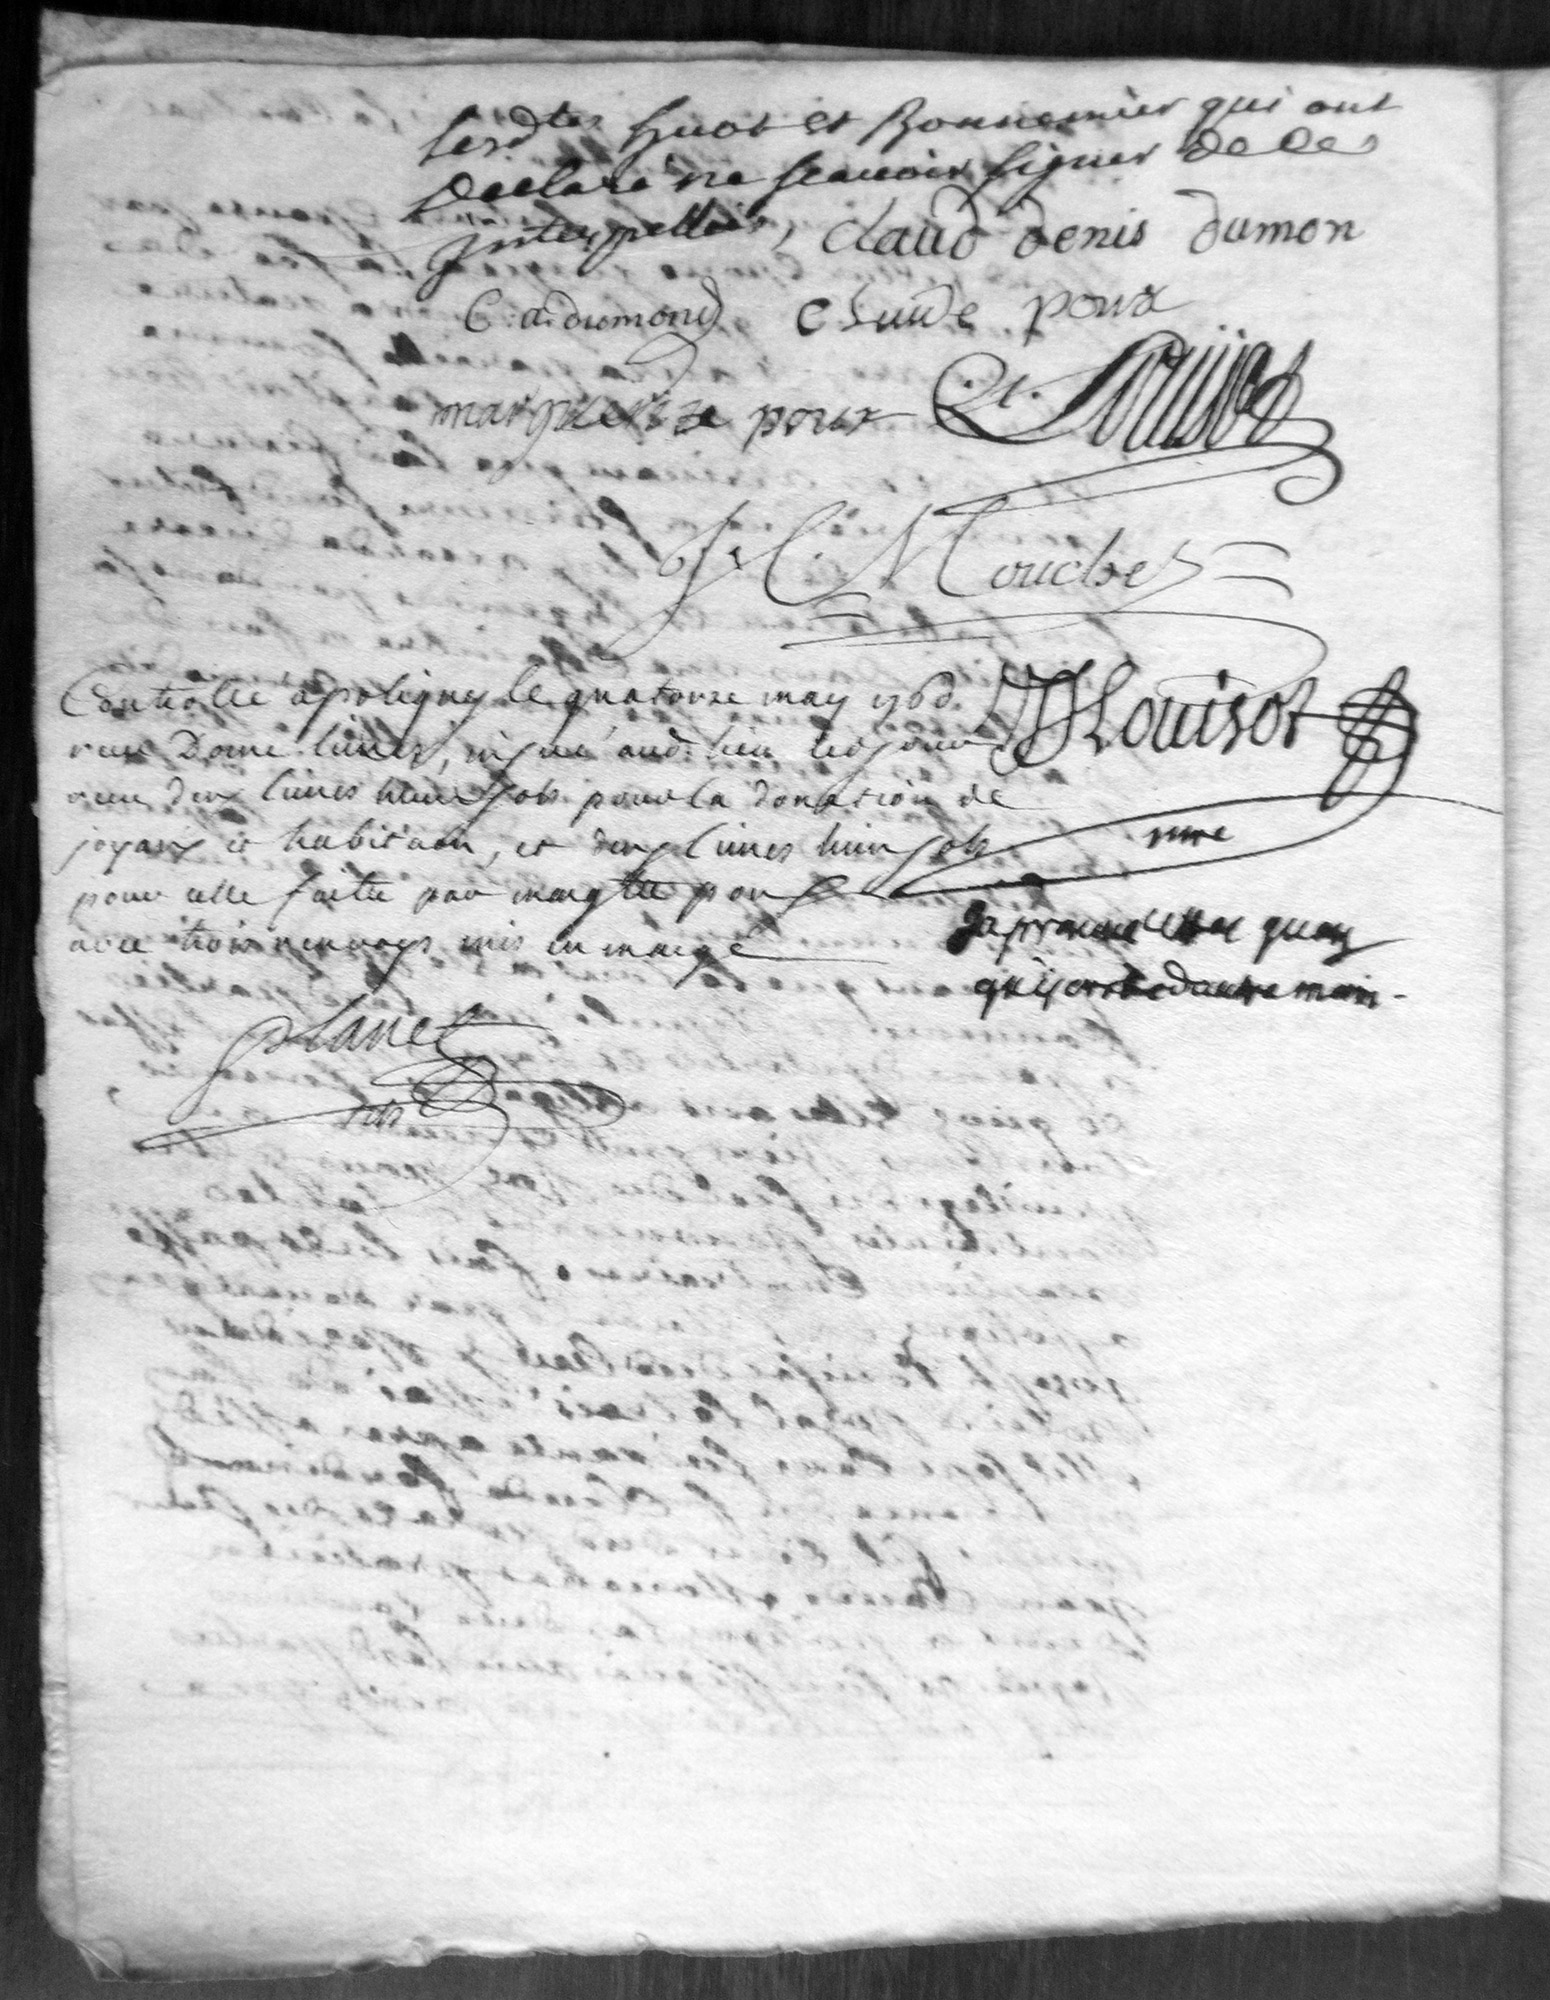 lesdtes huot et Bonnemier qui ont
declaré ne scauoir signer de ce
Interpellés, claud denis dumon
C. a. dumond claude poux
margueritte poux Louisot
J C Mouchet
Controllé a poligny le quatorze may
reçu Douze livres, insinué aud. lieu led jour
reçu deux livres huit sols pour la donation de
joyaux et habitaon, et deux livres huit sols
pour celle faitte par margtte poux
avec trois renvoys mis en marge
Louisot
nore
J'approuve quoy
qu'ycrit d'autre main
planet